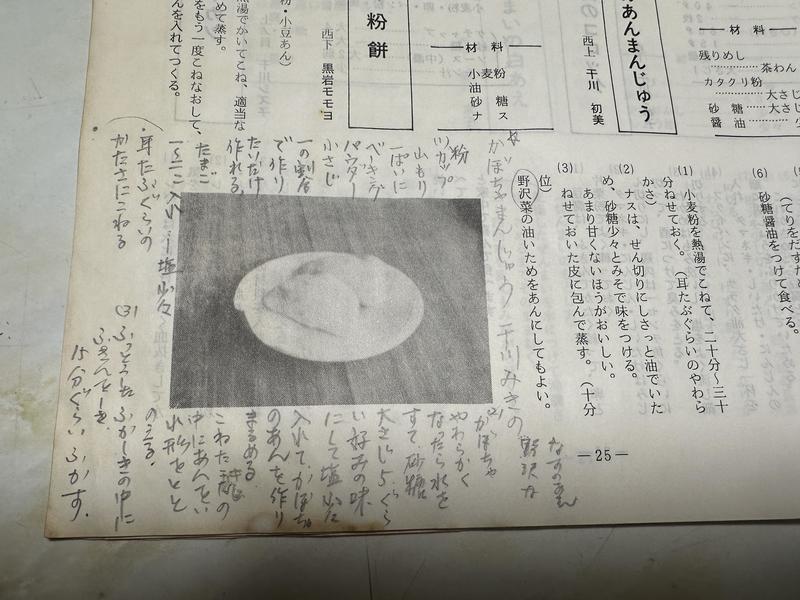 あんまんじゅう
西上 干川 初美
材料
残りめし
茶わん
カタクリ粉
大さじ
砂糖
大さ
醤油
小
(てりをだすた
砂糖醤油をつけて食べる。
(6)
(1) 小麦粉を熱湯でこねて、二十分~三十
分ねせておく。(耳たぶぐらいのやわら
かさ)
(2) ナスは、せん切りにしさっと油でいた
め、砂糖少々とみそで味をつける。
あまり甘くないほうがおいしい。
(3) ねせておいた皮に包んで蒸す。(十分
位)
野沢菜の油いためをあんにしてもよい。
材料
小麦粉
油
砂糖
ナス
粉餅
西下 黒岩モモヨ
粉・小豆あん)
熱湯でかいてこね、適当な
めて蒸す。
をもう一度こねなおして、
んを入れてつくる。
かぼちゃまんじゅう 干川みきの
粉
カップ
山もり
一ぱいに
ベーキング
パウダー
小さじ
一の割合
で作り
たいだけ
作れる。
たまご
1~2こ入れ
塩少々
耳たぶぐらいの
かたさにこねる
なすのあん
野沢な
(2)
かぼちゃ
やわらかく
なったら水を
すて、砂糖
大さじ5ぐら
い好みの味
にして塩少々
入れて、かぼちゃ
のあんを作り
まるめる
こねた粉の
中にあんをい
れ形をとと
のえる。
(3) ふっとうしたふかしきの中に
ふきんをしき
15分ぐらいふかす。
—25—